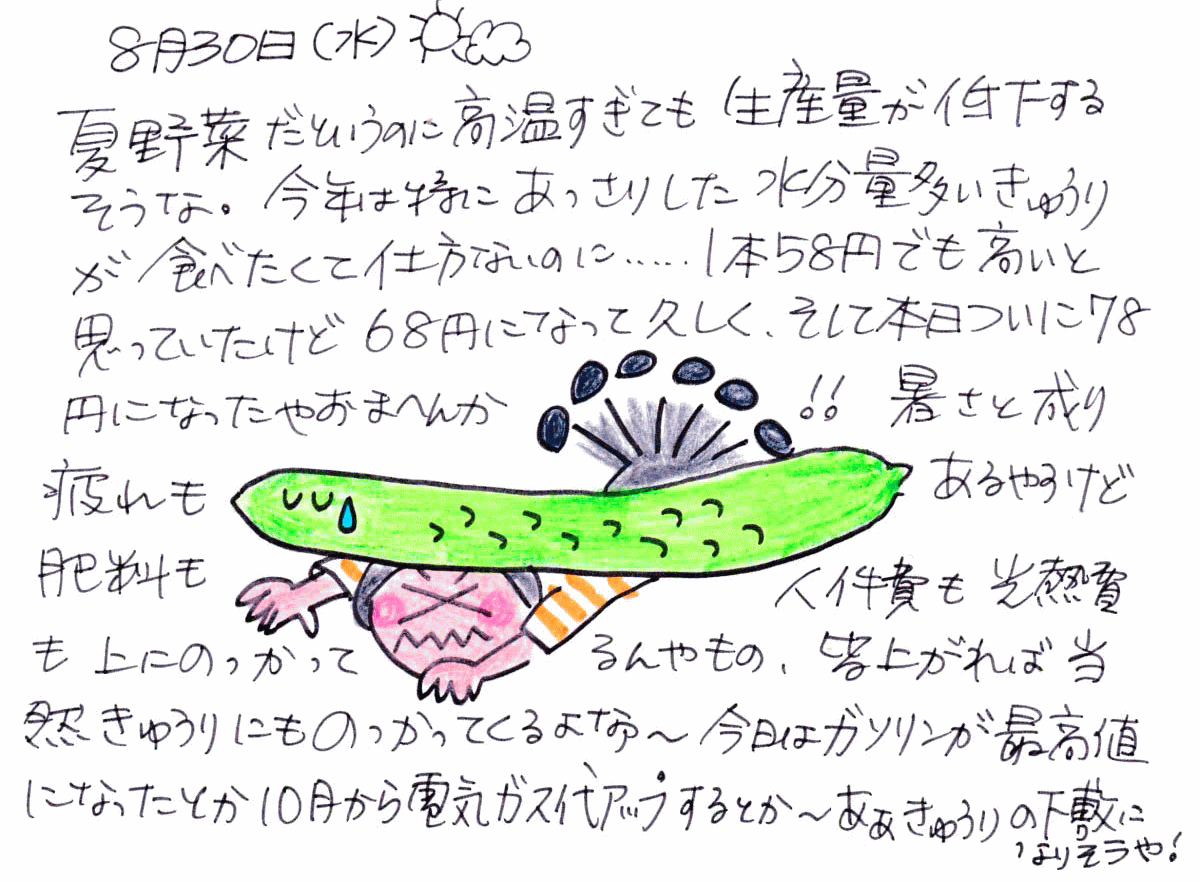 8月30日(水)
夏野菜だというのに高温すぎても生産量が低下する
そうな。今年は特にあっさりした水分量多いきゅうり
が食べたくて仕方ないのに……1本58円でも高いと
思っていたけど68円になって久しく、そして本日ついに78
円になったやおまへんか!! 暑さと成り
疲れも あるやろけど
肥料も 人件費も光熱費
も上にのっかって るんやもの、皆上がれば当
然きゅうりにものっかってくるよなぁ〜今日はガソリンが最高値
になったとか10月から電気ガス代アップするとか〜ああきゅうりの下敷に
なりそうや!